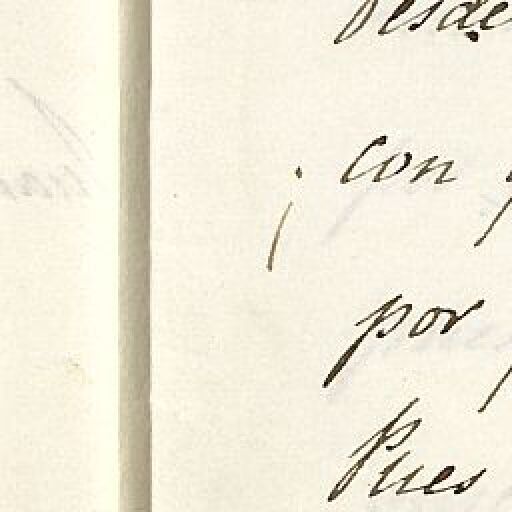 desde
¡ con
por
Pues